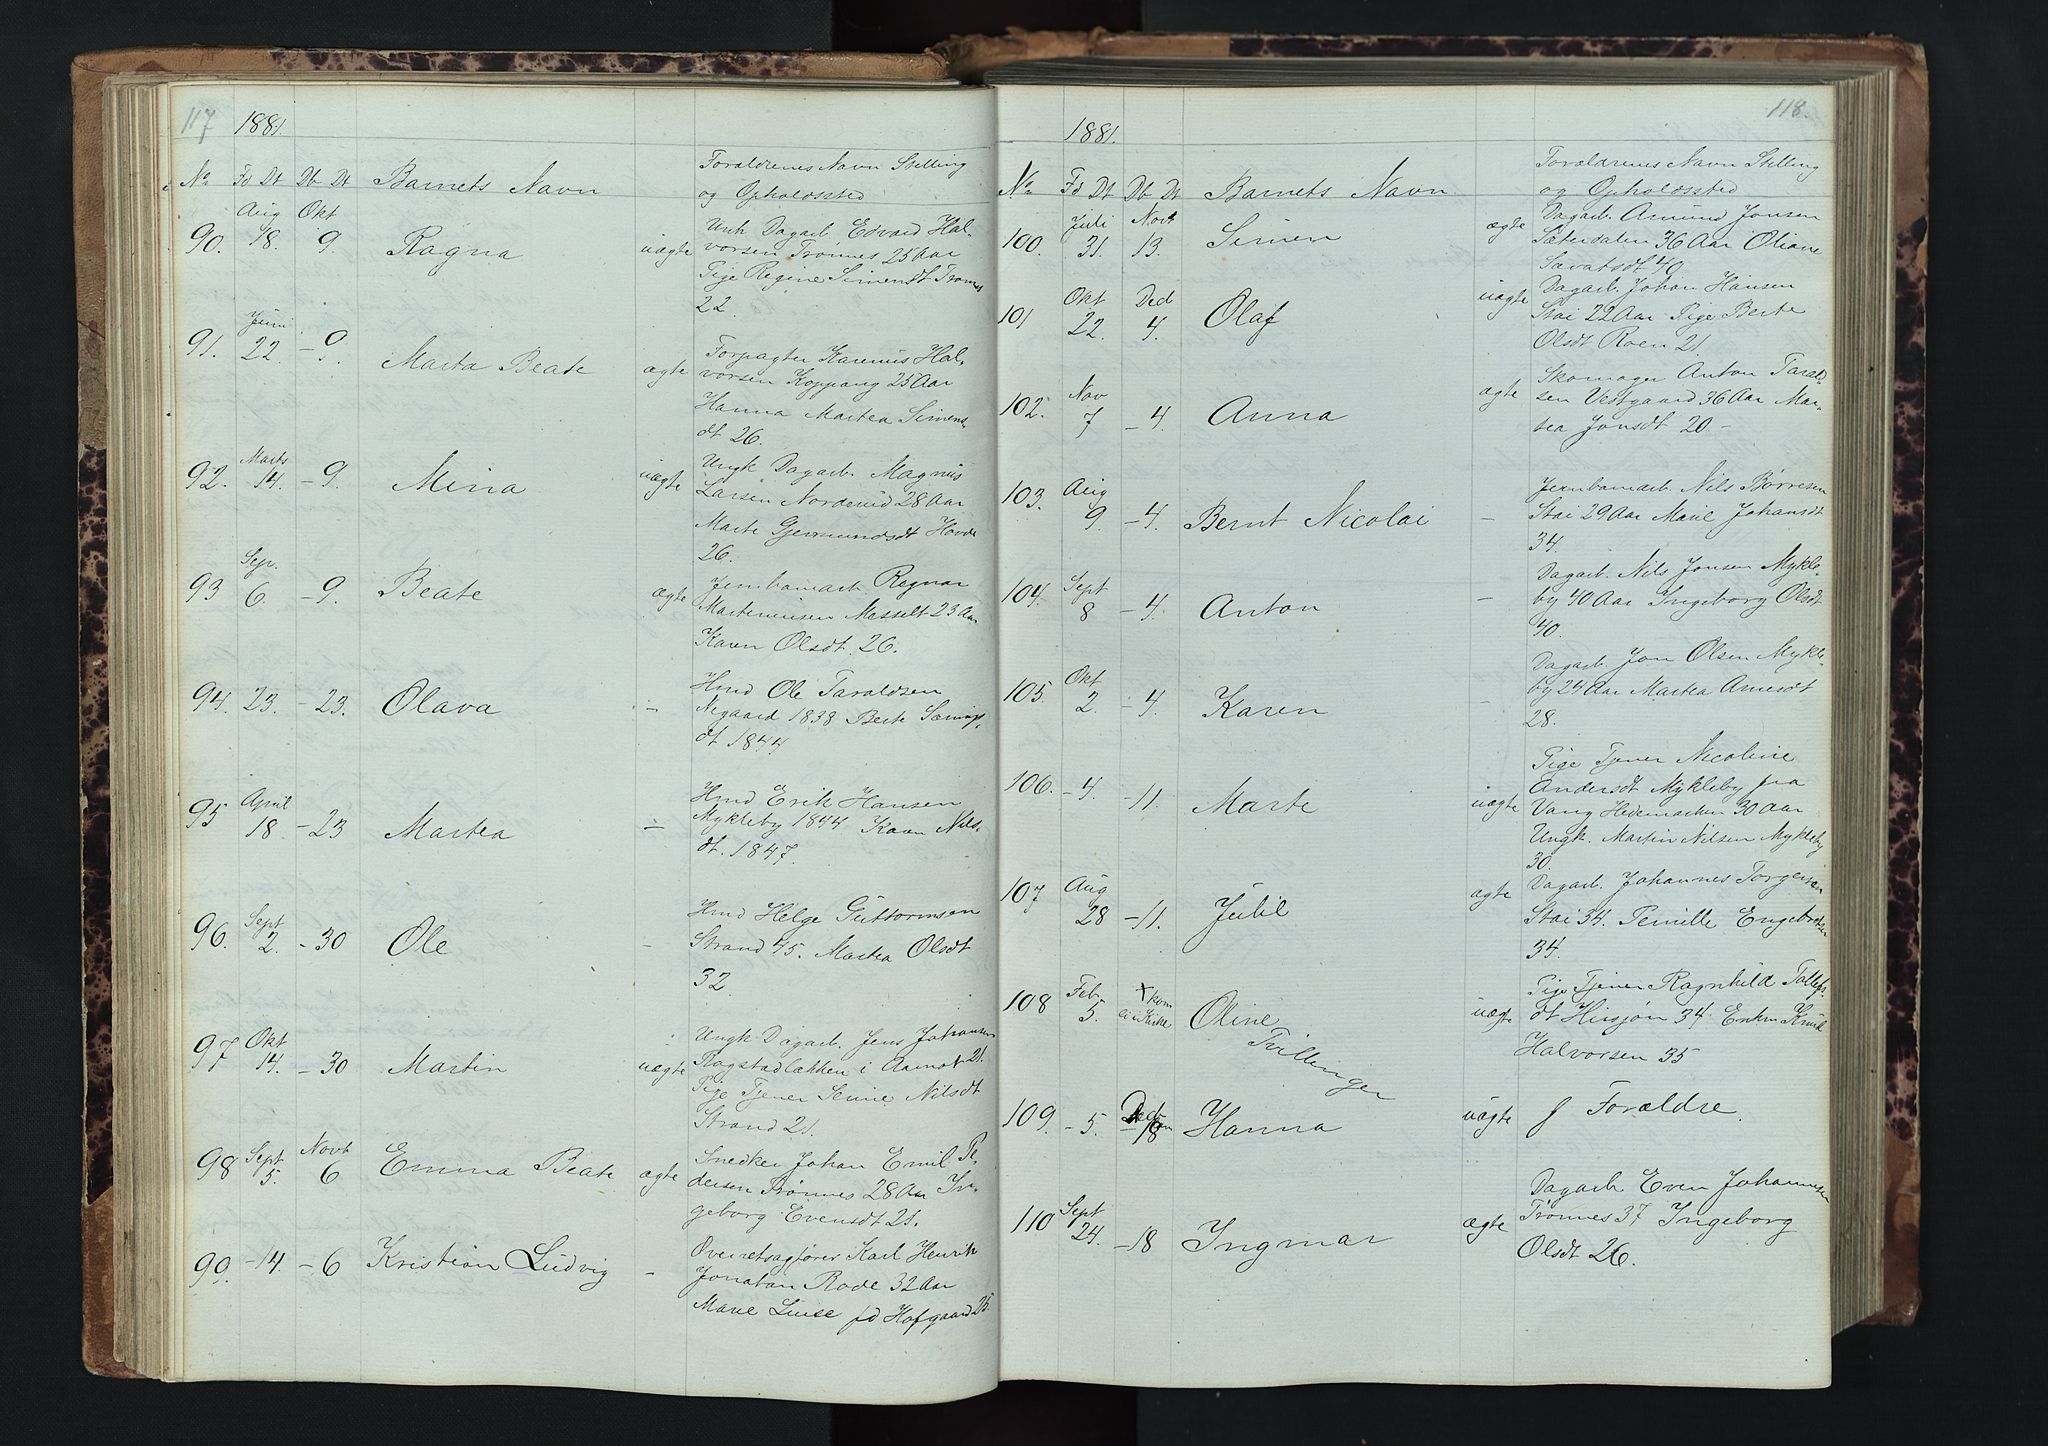 117
1881.
No Fd Dt Db Dt Barnets Navn
Forældrenes Navn Stilling
og Opholdssted
90. Aug 18. Okt 9. Ragna uægte
Unk Dagarb. Edvard Hal-
vorsen Trønnes 25 Aar
Pige Regine Simensdt Trønnes
22.
91. Juni 22 - 9. Marta Beate ægte
Forpagter Karenus Hal-
vorsen Koppang 25 Aar
Hanna Martea Simens-
dt 26.
92. Marts 14. - 9. Mina uægte
Ungk Dagarb. Magnus
Larsen Nordenid 28 Aar
Marte Gjermundsdt Hovde
26.
93 Sep. 6. - 9. Beate ægte
Jernbanarb. Regnar
Marteniusen Messelt 23 Aar
Karen Olsdt. 26.
94. 23. - 23. Olava -
Hmd Ole Taraldsen
Negaard 1838 Berte Sæmings-
dt 1844
95 April 18 - 23 Martea -
Hmd Erik Hansen
Mykleby 1844 Karen Nils-
dt. 1847.
96. Sept 2. - 30 Ole -
Hmd Helge Guttormsen
Strand 45. Martea Olsdt
32.
97 Okt 14. - 30 Martin uægte
Ungk Dagarb. Jens Johansen
Rogstadløkken i Aamot 21.
Pige Tjener Senine Nilsdt
Strand 21.
98 Sept 5. Novt 6 Emma Beate ægte
Snedker Johan Emil Pe-
dersen Trønnes 28 Aar In-
geborg Evensdt 21.
99. - 14. - 6 Kristian Ludvig -
Overretsagfører Karl Henrik
Jonatan Rode 32 Aar
Marie Louise fd Hofgaard 25.
118.
1881.
No Fd Dt Db Dt Barnets Navn
Forældrenes Navn Stilling
og Opholdssted
100. Juli 31. Novt 13. Simen ægte
Dagarb. Amund Jonsen
Sæterdalen 36 Aar Oliane
Savatsdt 40
101 Okt 22. Decb 4. Olaf uægte
Dagarb. Johan Hansen
Stai 22 Aar Pige Berte
Olsdt Roen 21
102. Nov 7 - 4. Anna ægte
Skomager Anton Tarald-
sen Vestgaard 36 Aar Mar-
tea Jonsdt 20 -
103. Aug 9 - 4. Bernt Nicolai -
Jernbanarb. Nils Børresen
Stai 29 Aar Marie Johansdt
34.
104. Sept 8 - 4. Anton -
Dagarb. Nils Jonsen Mykle-
by 40 Aar Ingeborg Olsdt
40.
105. Okt 2. - 4. Karen -
Dagarb. Jon Olsen Mykle-
by 24 Aar Martea Arnesdt
28.
106. - 4. - 11. Marte uægte
Pige Tjener Nicoline
Andersdt Mykleby fra
Vang Hedemarken 30 Aar
Ungk. Martin Nilsen Mykleby
30.
107 Aug 28 - 11. Jubil ægte
Dagarb. Johannes Torgersen
Stai 34. Pernille Engebretsen
34.
108 Feb. 5. + kom ei i Kirke Oline uægte
Tvillinger
Pige Tjener Ragnhild Tollefs-
dt Hirsjøn 34 Enkm Knud
Halvorsen 35
109. - 5. Decb - 18 Hanna uægte
f Forældre.
110 Sept 24. - 18 Ingmar ægte
Dagarb. Even Johannesen
Trønnes 37 Ingeborg
Olsdt 26.